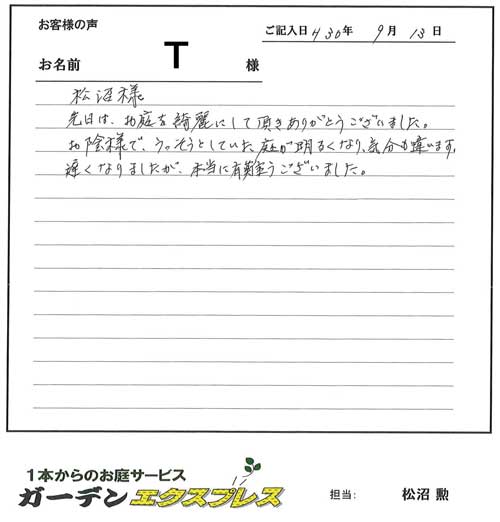 お客様の声
ご記入日 H30年 9月 13日
お名前 T 様
松沼様
先日は、お庭を綺麗にして頂きありがとうございました。
お陰様で、うっそうとしていた庭が明るくなり、気分も違います。
遅くなりましたが、本当に有難うございました。
1本からのお庭サービス
ガーデンエクスプレス
担当: 松沼 勲